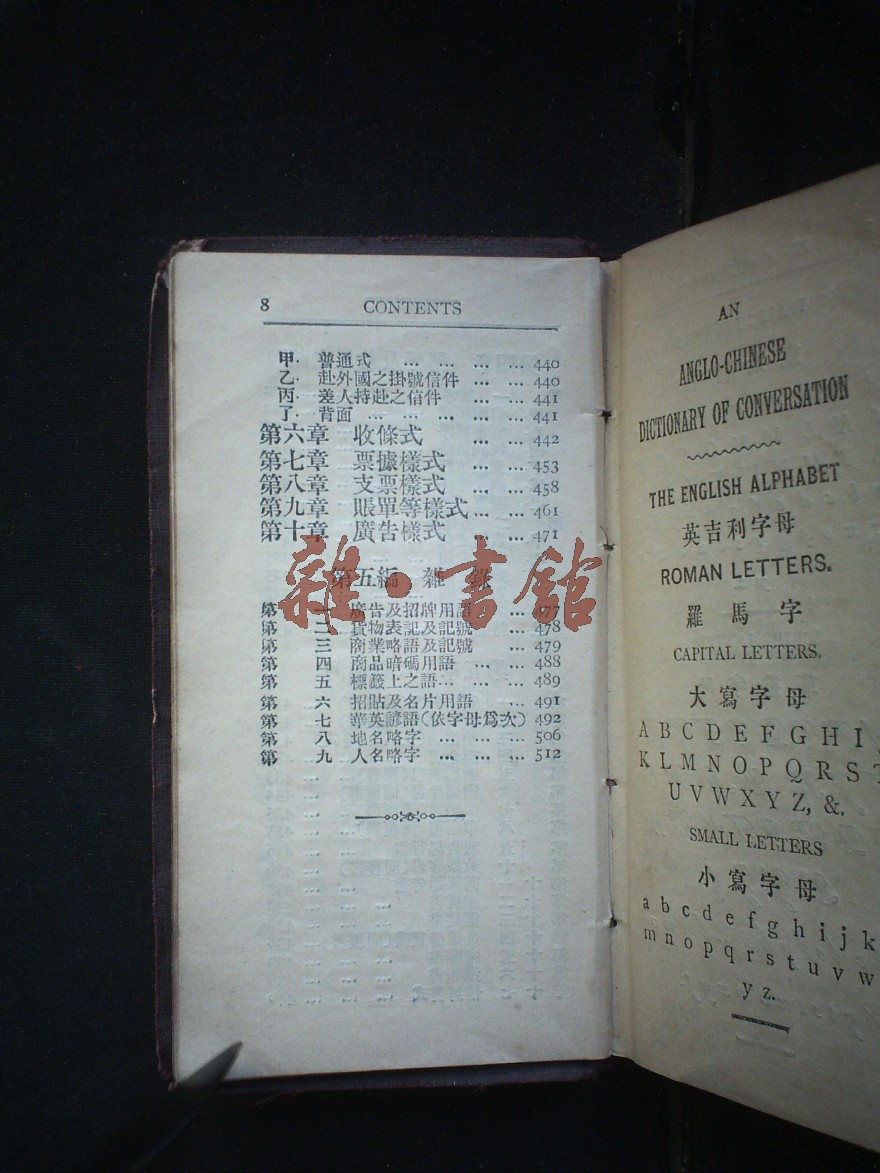 8 CONTENTS
甲. 普通式 ... ... ... ... 440
乙. 赴外國之掛號信件 ... ... 440
丙. 差人持赴之信件 ... ... 441
丁. 背面 ... ... ... ... ... 441
第六章 收條式 ... ... 442
第七章 票據樣式 ... ... 453
第八章 支票樣式 ... ... 458
第九章 賬單等樣式 ... ... 461
第十章 廣告樣式 ... ... 471
第五編 雜錄
第一 廣告及招牌用語 ... 477
第二 貨物表記及記號 ... 478
第三 商業略語及記號 ... 479
第四 商品暗碼用語 ... ... 488
第五 標籤上之語 ... ... ... 489
第六 招貼及名片用語 ... 491
第七 華英諺語(依字母爲次) 492
第八 地名略字 ... ... ... 506
第九 人名略字 ... ... ... 512
雜·書館
AN
ANGLO-CHINESE
DICTIONARY OF CONVERSATION
THE ENGLISH ALPHABET
英吉利字母
ROMAN LETTERS.
羅馬字
CAPITAL LETTERS.
大寫字母
A B C D E F G H I
K L M N O P Q R S T
U V W X Y Z, &.
SMALL LETTERS
小寫字母
a b c d e f g h i j k
m n o p q r s t u v w
y z.